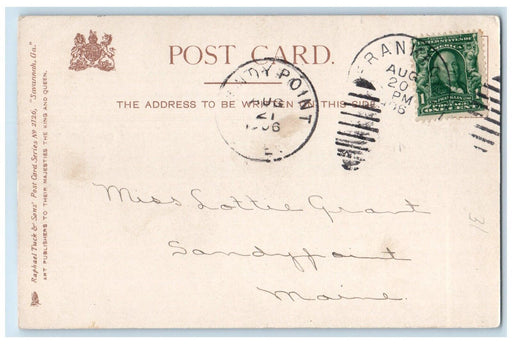 POST CARD.
THE ADDRESS TO BE WRITTEN ON THIS SIDE
NDY POINT
AUG
21
1906
FRANK
AUG
20
PM
06
1
Miss Lottie Grant
Sandypoint
Maine.
31
Raphael Tuck & Sons' Post Card Series No 2126, "Savannah, Ga."
ART PUBLISHERS TO THEIR MAJESTIES THE KING AND QUEEN.